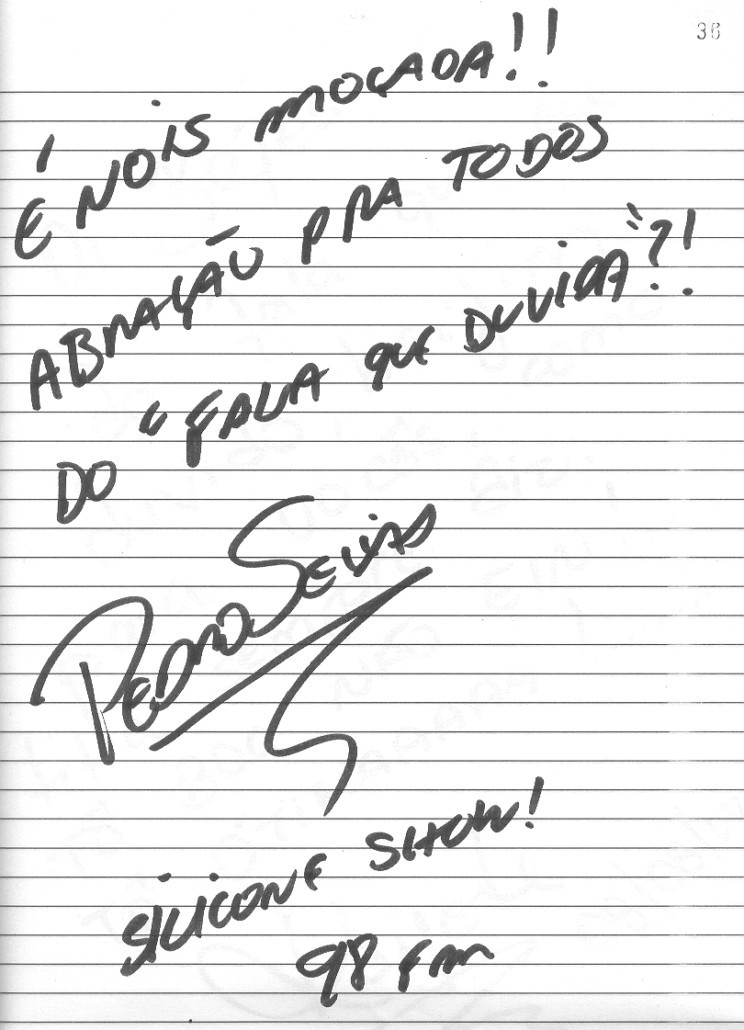 36
É NOIS MOÇADA!!
ABRAÇÃO PRA TODOS
DO "FALA QUE DUVIDA"?!
PEDRO SELVAS
SILICONE SHOW!
98 FM